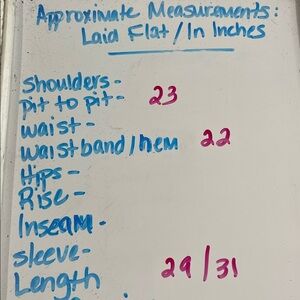 Approximate Measurements:
Laid Flat/In Inches
Shoulders-
Pit to pit- 23
waist-
waistband/hem 22
Hips-
Rise-
Inseam-
sleeve-
Length 29/31